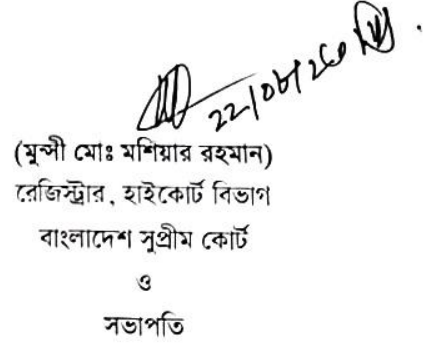 (মুন্সী মোঃ মশিয়ার রহমান)
রেজিস্ট্রার, হাইকোর্ট বিভাগ
বাংলাদেশ সুপ্রীম কোর্ট
ও
সভাপতি